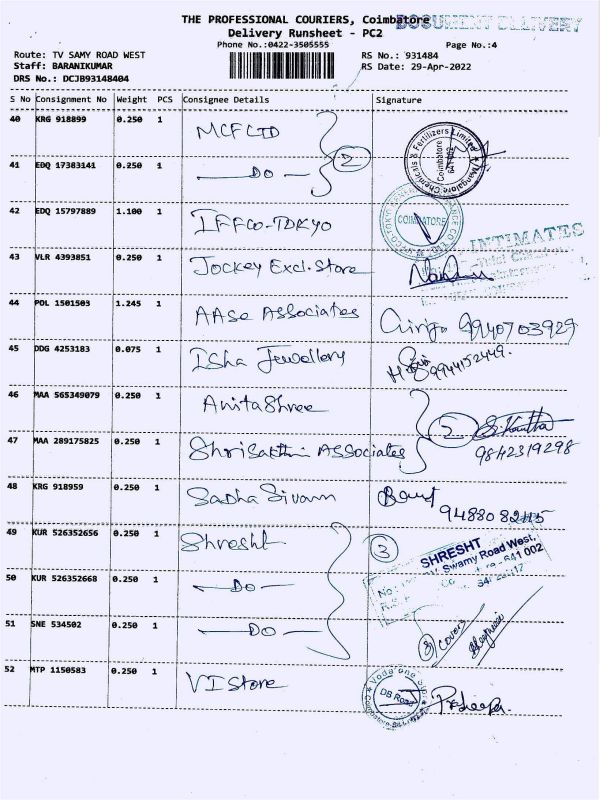 THE PROFESSIONAL COURIERS, Coimbatore
DOCUMENT DELIVERY
Delivery Runsheet - PC2
Phone No.:0422-3505555 Page No.:4
Route: TV SAMY ROAD WEST RS No.: 931484
Staff: BARANIKUMAR RS Date: 29-Apr-2022
DRS No.: DCJB93148404
S No Consignment No Weight PCS Consignee Details Signature
40 KRG 918899 0.250 1 MCFLTD
Mangalore Chemicals & Fertilizers Limited
Coimbatore
641 002
2
41 EDQ 17383141 0.250 1 DO
42 EDQ 15797889 1.100 1 IFFCO-TOKYO
COIMBATORE
INTIMATES
43 VLR 4393851 0.250 1 Jockey Excl. Store
44 POL 1501503 1.245 1 AAse Associates 9940703929
45 DDG 4253183 0.075 1 Isha Jewellery 9944152449.
46 MAA 565349079 0.250 1 Anita Shree
2
47 MAA 289175825 0.250 1 Shrisakthi Associates 9842319298
48 KRG 918959 0.250 1 Sadha Sivam
49 KUR 526352656 0.250 1 Shresht 3
SHRESHT
Swamy Road West,
641 002
50 KUR 526352668 0.250 1 DO
51 SNE 534502 0.250 1 DO
3 covers
52 MTP 1150583 0.250 1 VI Store
DB Road